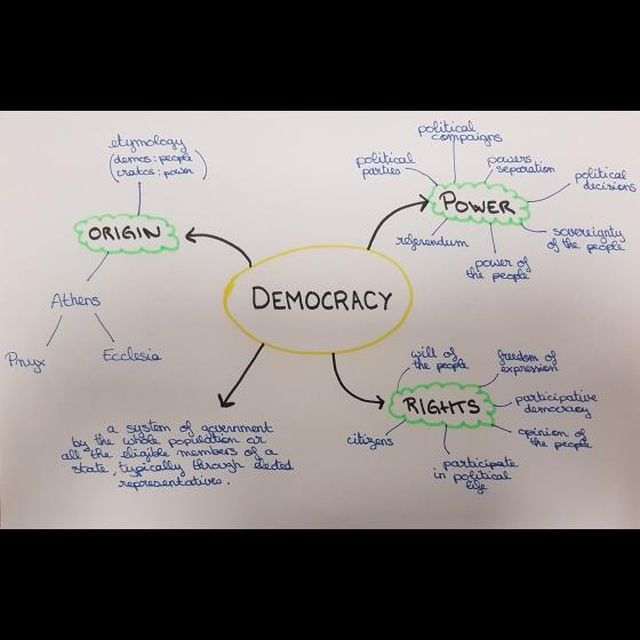 etymology
(demos : people
cratos : power)
ORIGIN
Athens
Pnyx
Ecclesia
political
campaigns
political
parties
powers
separation
political
decisions
POWER
referendum
power of
the people
sovereignty
of the people
DEMOCRACY
will of
the people
freedom of
expression
RIGHTS
participative
democracy
citizens
opinion of
the people
participate
in political
life
a system of government
by the whole population or
all the eligible members of a
state, typically through elected
representatives.